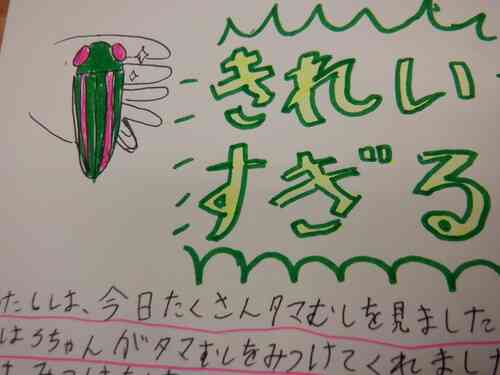 きれい
すぎる
たしは、今日たくさんタマむしを見ました
はろちゃんがタマむしをみつけてくれました